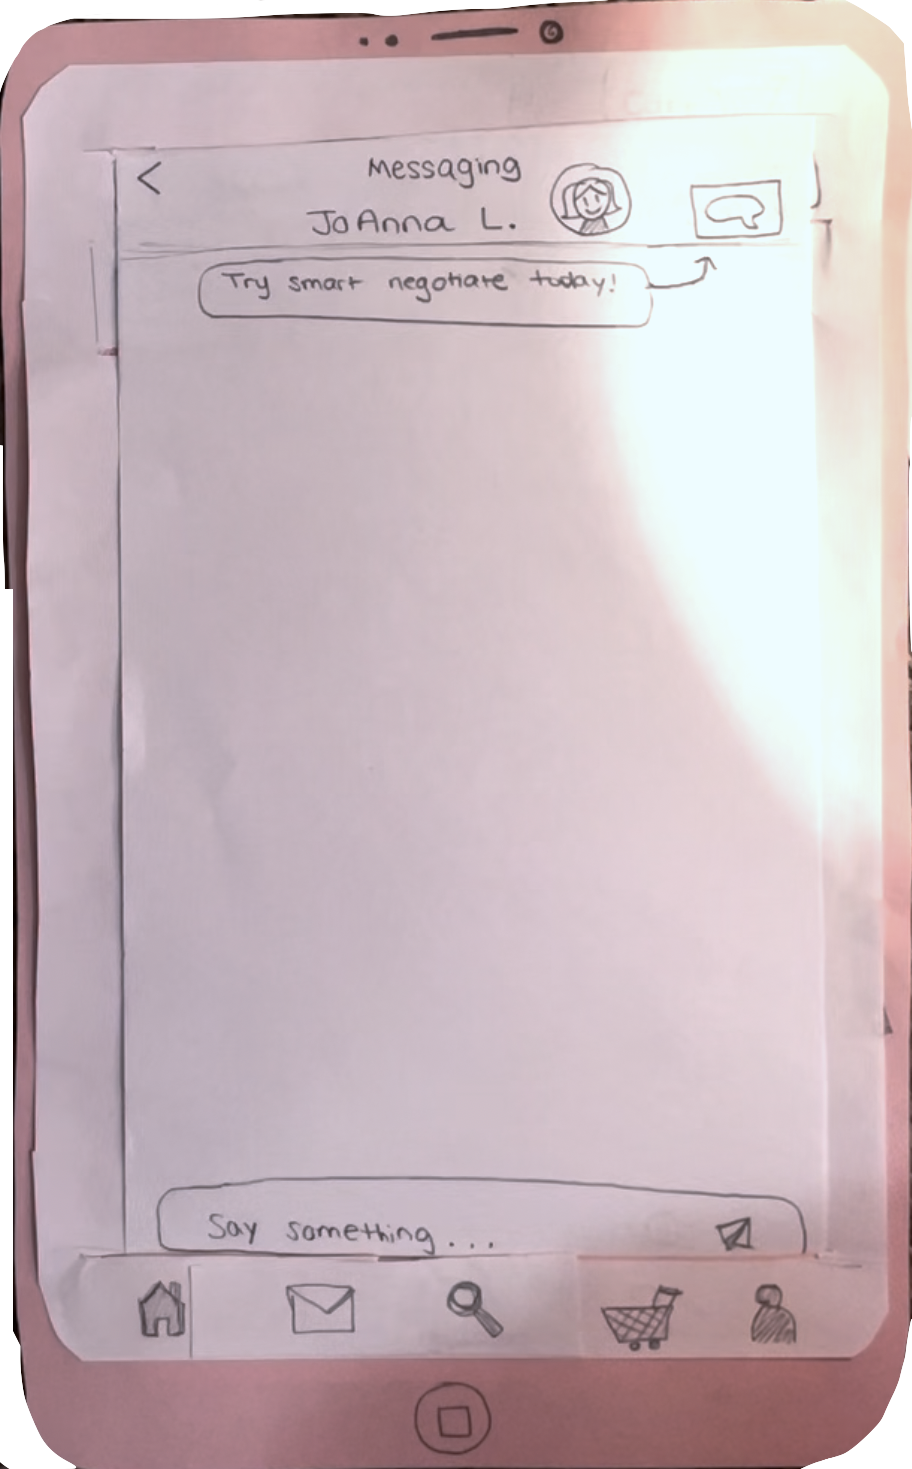 Messaging
JoAnna L.
Try smart negotiate today!
Say something...